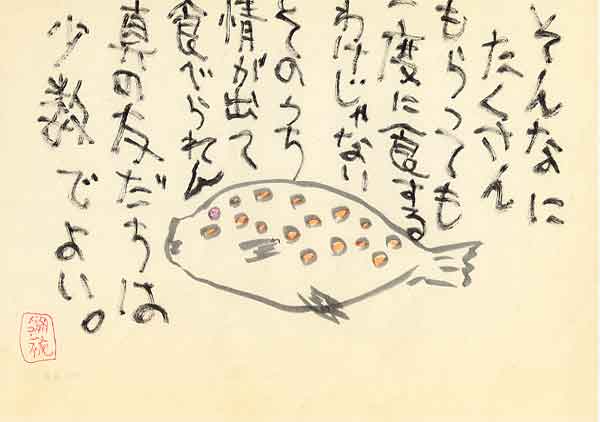 そんなに
たくさん
もらっても
一度に食する
わけじゃない
そのうち
情が出て
食べられん
真の友だちは
少数でよい。